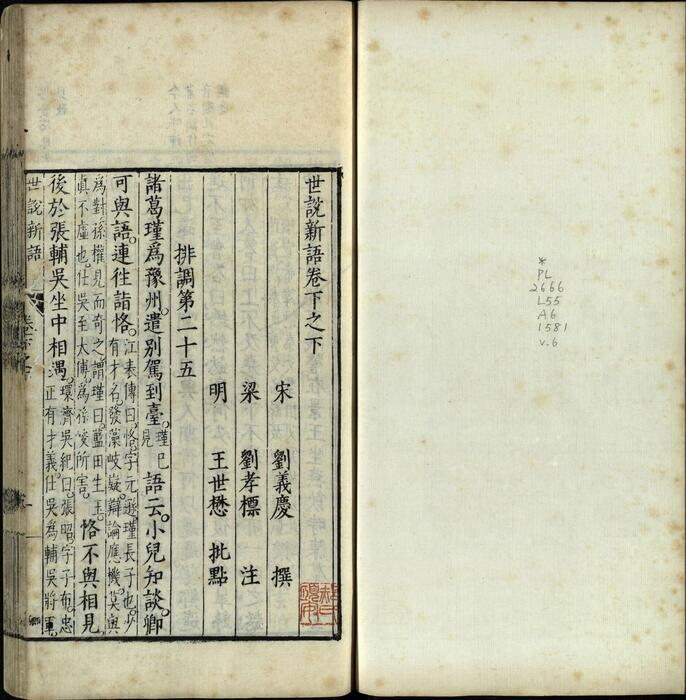 世說新語卷下之下
宋 劉義慶 撰
梁 劉孝標 注
明 王世懋 批點
排調第二十五
諸葛瑾爲豫州。遣別駕到臺。瑾已見語云。小兒知談。卿
可與語。連往詣恪。江表傳曰。恪字元遜。瑾長子也。少有才名。發藻岐嶷。辯論應機。莫與
爲對。孫權見而奇之。謂瑾曰。藍田生玉。眞不虛也。仕吳至太傅。爲孫峻所害。恪不與相見
後於張輔吳坐中相遇。環濟吳紀曰。張昭。字子布。忠正有才義。仕吳爲輔吳將軍。
世說新語
*
PL
2666
L55
A6
1581
v.6